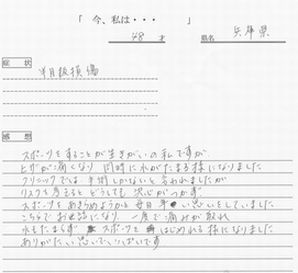 「今、私は・・・　　　」
48 才　県名 兵庫県
症状
半月板損傷
感想
スポーツをすることが生きがいの私ですが
ヒザが痛くなり 同時に水がたまる様になりました
クリニックでは、手術しかないと言われましたが
リスクを考えると どうしても 決心がつかず
スポーツをあきらめようかと毎日 辛い思いをしていました
こちらでお世話になり、一度で痛みが取れ
水もたまらず スポーツをはじめれる様になりました
ありがたい思いでいっぱいです